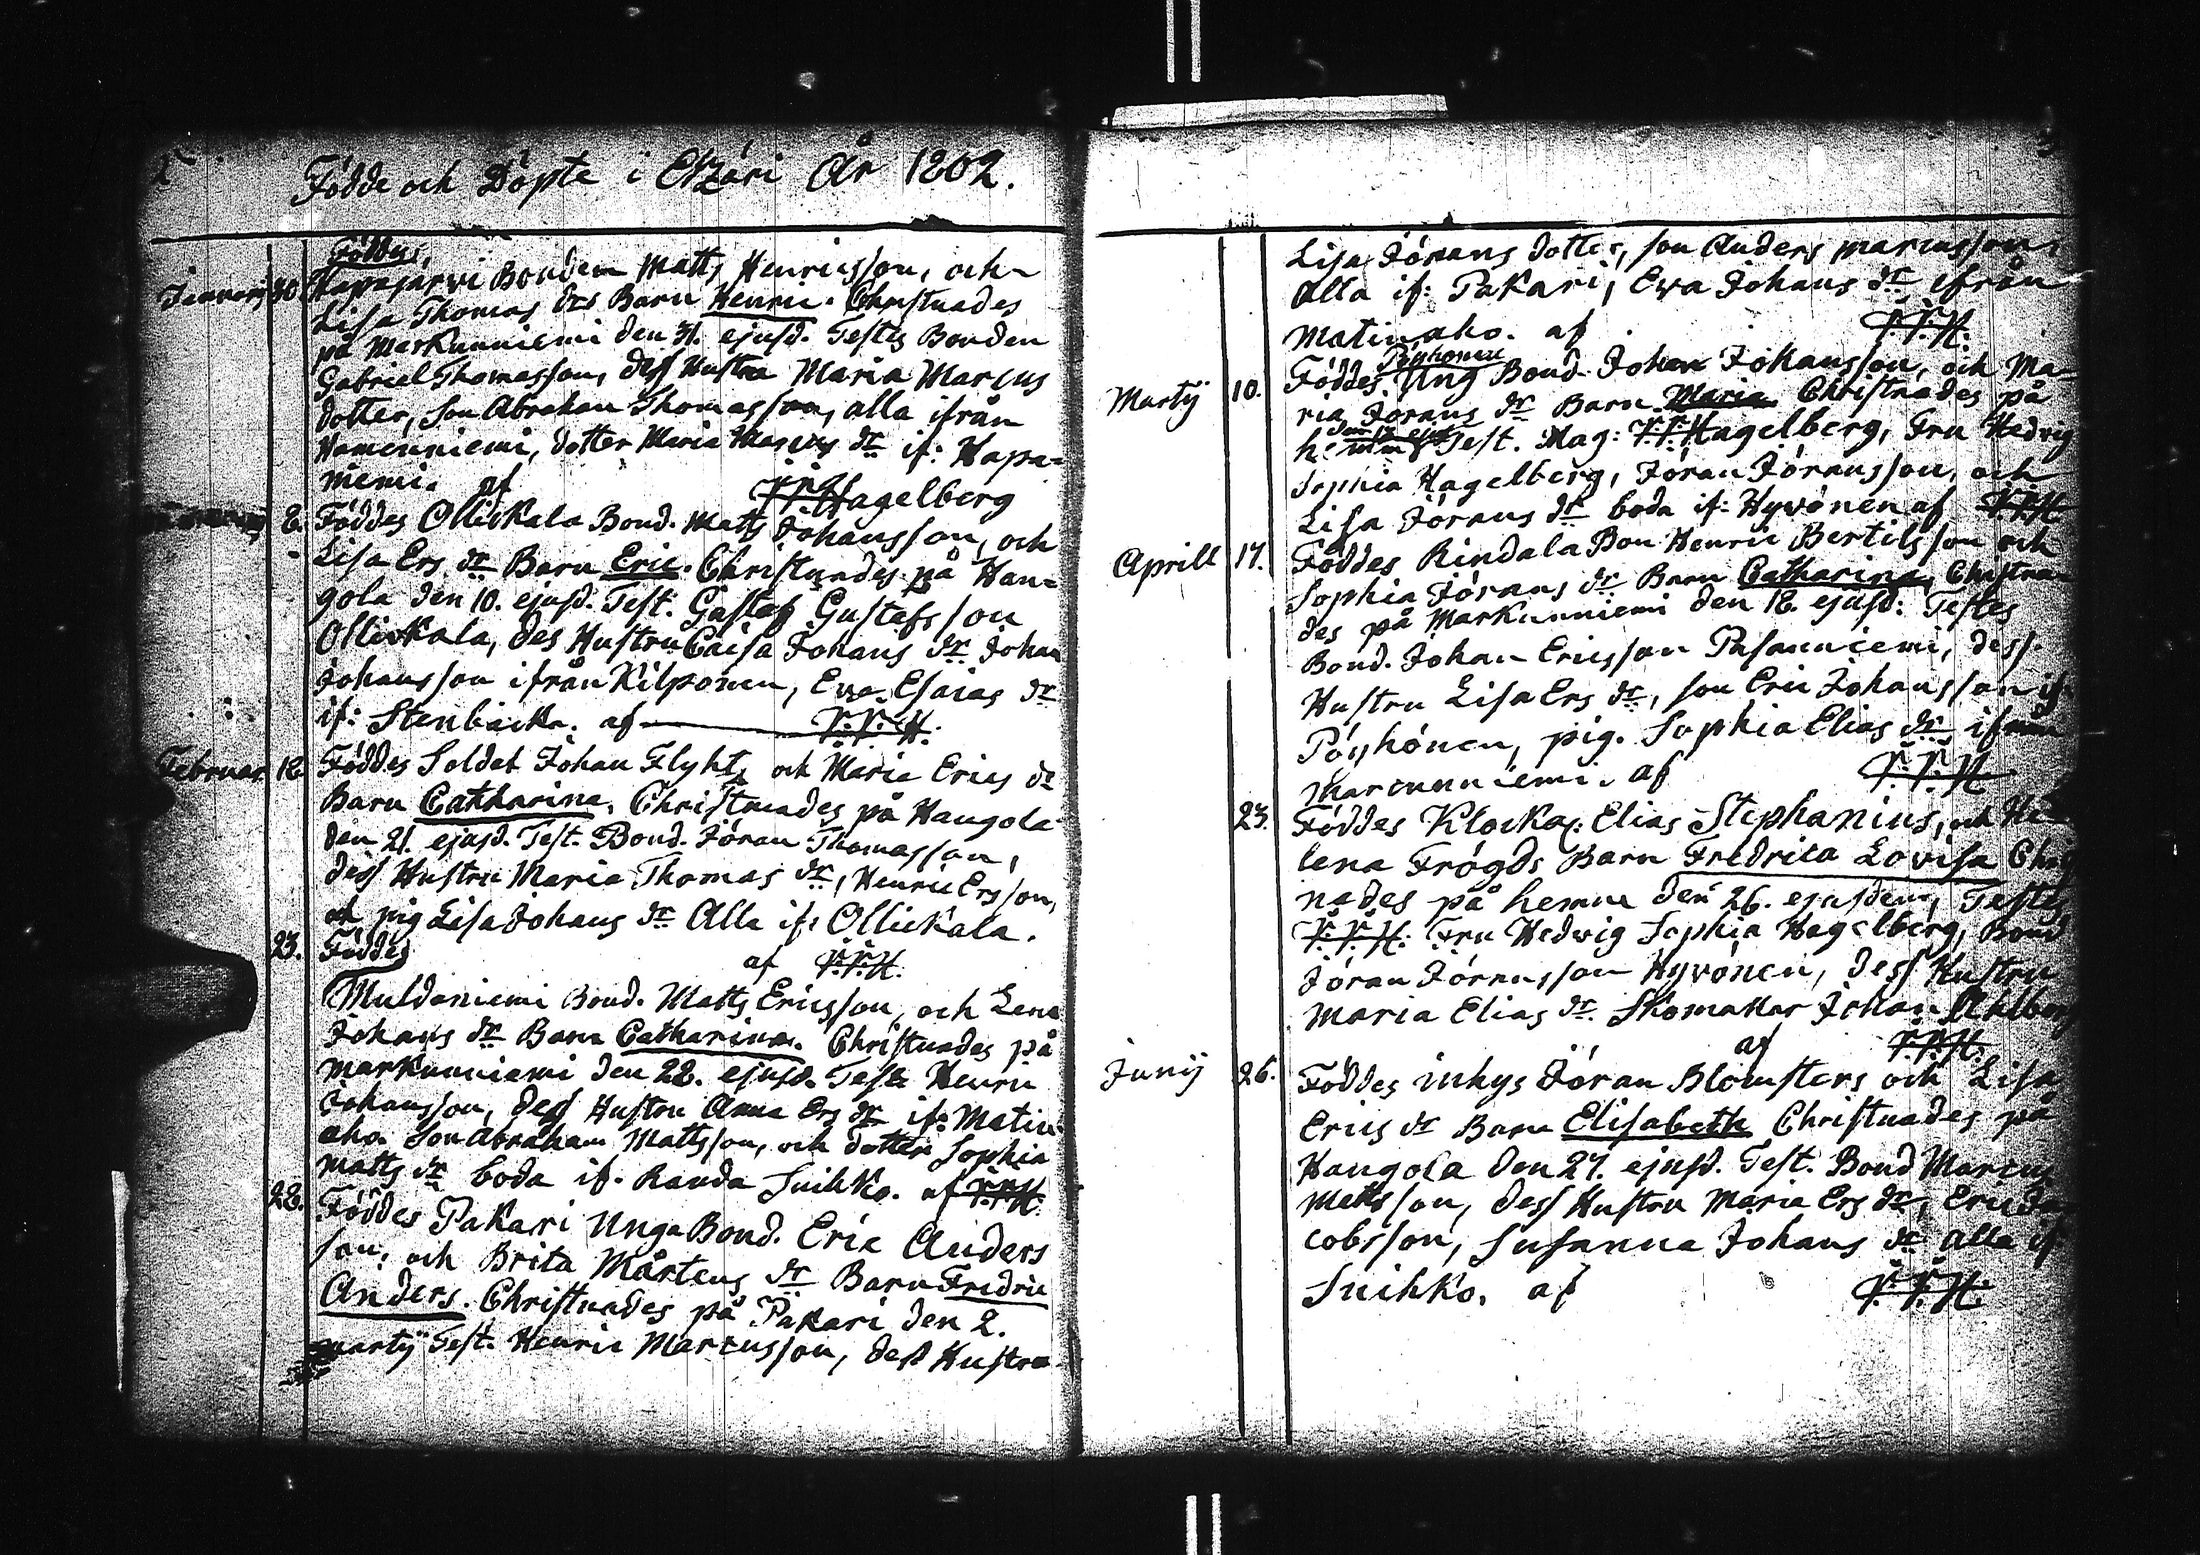 Födde och Döpte i Etzäri År 1802.
Föddes,
Januarij 30. Hapajarwi Bonden Matts Henricsson, och
Lisa Thomas drs Barn Henric. Christnades
på Markunniemi den 31. ejusd. Testes Bonden
Gabriel Thomasson, dess Hustru Maria Marcus
dotter, son Abraham Thomasson, alla ifrån
Hamenniemi, dotter Maria Marcus dr if: Hapa-
niemi. af Hagelberg
8. Föddes Ollickala Bond. Matts Johansson, och
Lisa Ers dr Barn Eric. Christnades på Han-
gola den 10. ejusd. Test. Gustaf Gustafsson
Ollickala, des Hustru Caisa Johans dr Johan
Johansson ifrån Kilponen, Eva Esaias dr
if: Stenbacka. af
Februar. 18. Föddes Soldat Johan Flyht, och Maria Erics dr
Barn Catharina, Christnades på Hangola
den 21. ejusd. Test. Bond. Jöran Thomasson,
dess Hustru Maria Thomas dr, Henric Ersson,
och pig Lisa Johans dr Alla if: Ollickala.
23. Föddes af
Muldaniemi Bond. Matts Ericsson, och Lena
Johans dr Barn Catharina. Christnades på
Markunniemi den 28. ejusd. Test. Henric
Johansson, dess Hustru Anna Ers dr if: Matin
aho. Son Abraham Mattsson, och dotter Sophia
Matts dr boda if. Randa Snihko. af
28. Föddes Pakari Unga Bond. Eric Anders
son, och Brita Mårtens dr Barn Fredric
Anders. Christnades på Pakari den 2.
Martij Test. Henric Marcusson, dess Hustru
Lisa Jörans dotter, son Anders Marcusson,
alla if: Pakari, Eva Johans dr ifrån
Matinaho. af
Pöyhönen
Martij 10. Föddes Ung Bond. Johan Johansson, och Ma-
ria Jörans dr Barn Maria Christnades på
Test. Mag: Hagelberg, Fru Hedvig
Sophia Hagelberg, Jöran Jöransson, och
Lisa Jörans dr boda if: Hyvönen af
Aprill 17. Föddes Rindala Bon Henric Bertilsson och
Sophia Jörans dr Barn Catharina, Christna-
des på Markunniemi den 18. ejusd: Testes
Bond. Johan Ericsson Pasanniemi, dess
Hustru Lisa Ers dr, son Eric Johansson if:
Pöyhönen, pig. Sophia Elias dr, ifrån
Marcunniemi. af
23. Föddes Klockar: Elias Stephanius, och He-
lena Frögds Barn Fredrica Lovisa Christ
nades på hemmet den 26. ejusdem, Testes
Fru Hedwig Sophia Hagelberg, Bond
Jöran Jöransson Hyvönen, dess Hustru
Maria Elias dr. Skomakar Johan Ahlberg
af
Junij 26. Föddes inhys Jöran Blomsters och Lisa
Erics dr Barn Elisabeth Christnades på
Hangola den 27. ejusd. Test. Bond Marcus
Mattsson, dess Hustru Maria Ers dr, Eric Ja
cobsson, Susanna Johans dr alla if
Snihko. af